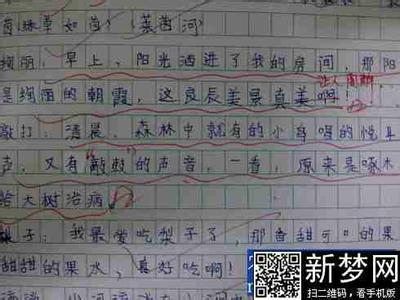 茵绿草如茵)(莱茵河)
绚丽:早上,阳光洒进了我的房间,那阳
是绚丽的朝霞,这良辰美景真美啊!
敲打:清晨,森林中就有的小鸟唱的悦耳
声,又有“敲鼓”的声音,一看,原来是啄木
给大树治病。
梨子:我最爱吃梨子了,那香甜可口的果
甜甜的果水,真好吃啊!
新梦网
扫二维码,看手机版